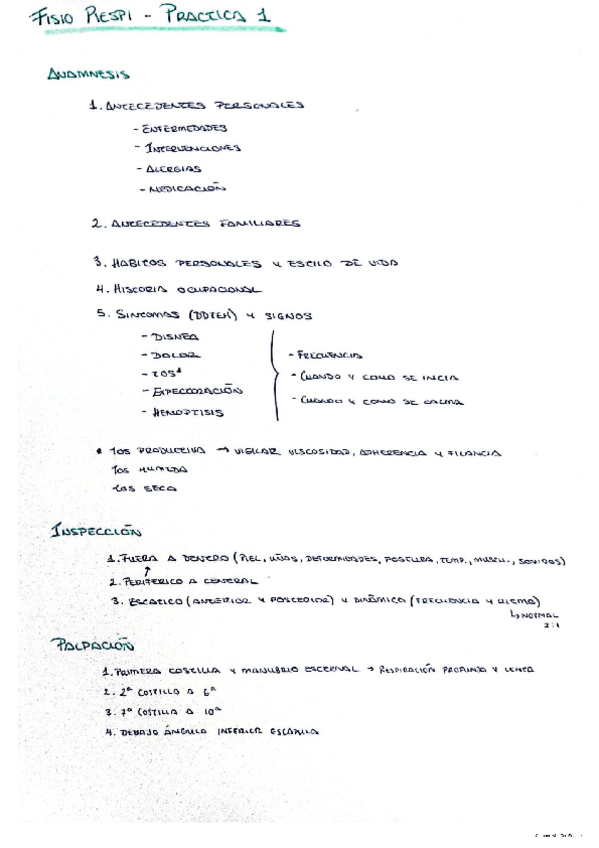 FISIO RESPI - PRACTICA 1
ANAMNESIS
1. ANTECEDENTES PERSONALES
- ENFERMEDADES
- INTERVENCIONES
- ALERGIAS
- MEDICACIÓN
2. ANTECEDENTES FAMILIARES
3. HABITOS PERSONALES Y ESTILO DE VIDA
4. HISTORIA OCUPACIONAL
5. SINTOMAS (DDTEH) Y SIGNOS
- DISNEA
- DOLOR
- TOS*
- EXPECTORACIÓN
- HEMOPTISIS
- FRECUENCIA
- CUANDO Y COMO SE INICIA
- CUANDO Y COMO SE CALMA
* TOS PRODUCTIVA → VIGILAR VISCOSIDAD, ADHERENCIA Y FILANCIA
TOS HUMEDA
TOS SECA
INSPECCIÓN
1. FUERA A DENTRO (PIEL, UÑAS, DEFORMIDADES, POSTURA, TEMP., MUSCU., SONIDOS)
↑
2. PERIFERICO A CENTRAL
3. ESTATICO (ANTERIOR Y POSTERIOR) Y DINÁMICO (FRECUENCIA Y RITMO)
↳ NORMAL
2:1
PALPACIÓN
1. PRIMERA COSTILLA Y MANUBRIO ESTERNAL → RESPIRACIÓN PROFUNDA Y LENTA
2. 2ª COSTILLA A 6ª
3. 7ª COSTILLA A 10ª
4. DEBAJO ÁNGULO INFERIOR ESCAPULA